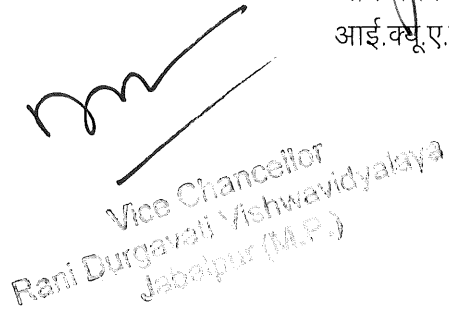 आई.क्यू.ए.
Vice Chancellor
Rani Durgavati Vishwavidyalaya
Jabalpur (M.P.)